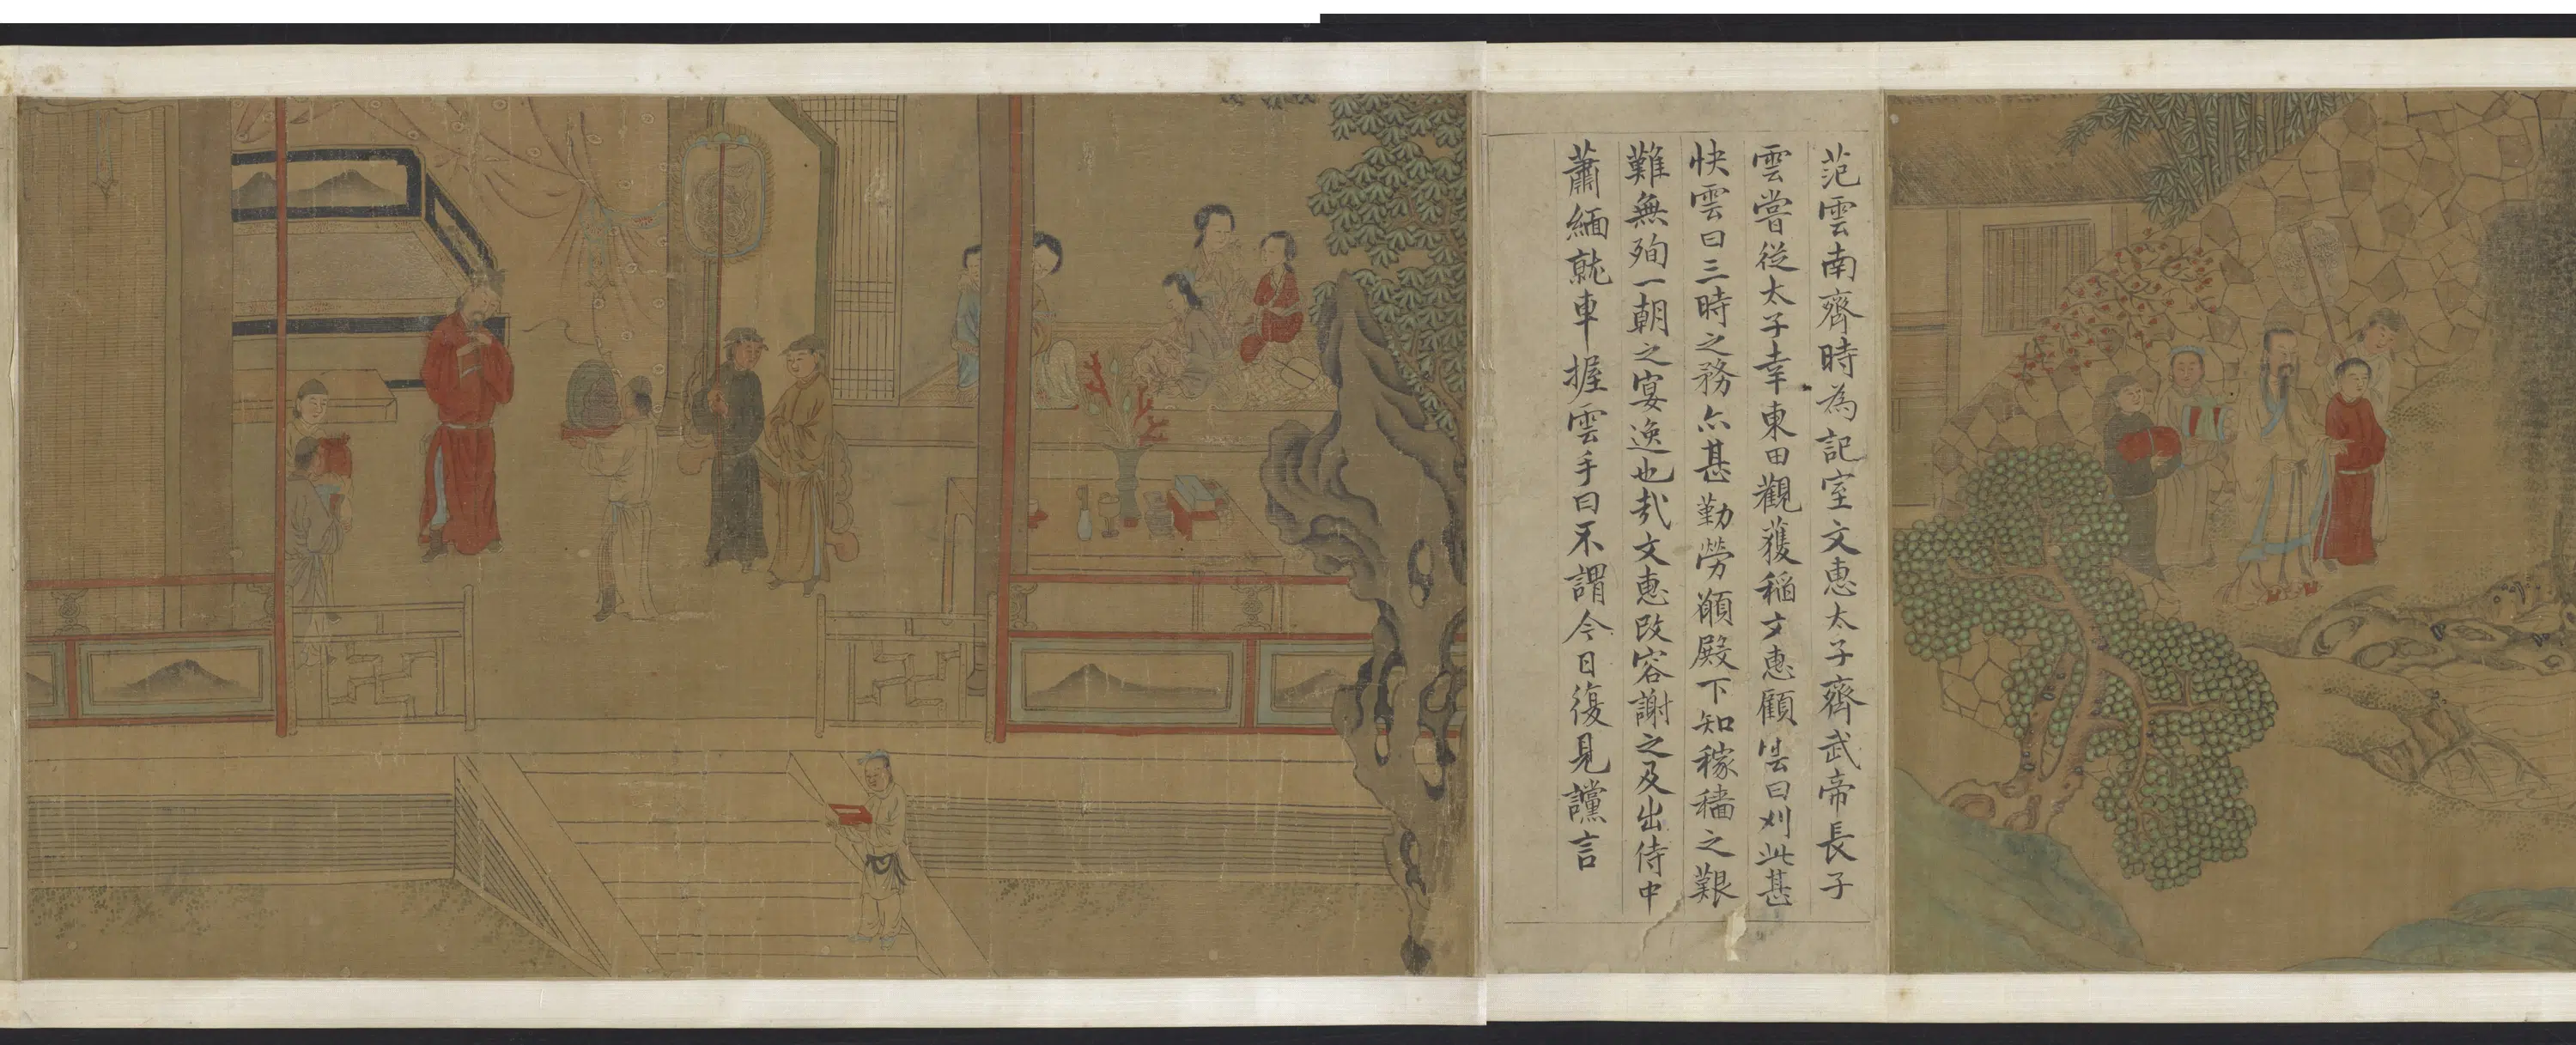 范雲南齊時為記室文惠太子齊武帝長子
雲嘗從太子幸東田觀獲稻文惠顧雲曰刈此甚
快雲曰三時之務亦甚勤勞願殿下知稼穡之艱
難無殉一朝之宴逸也哉文惠改容謝之及出侍中
蕭緬就車握雲手曰不謂今日復見讜言